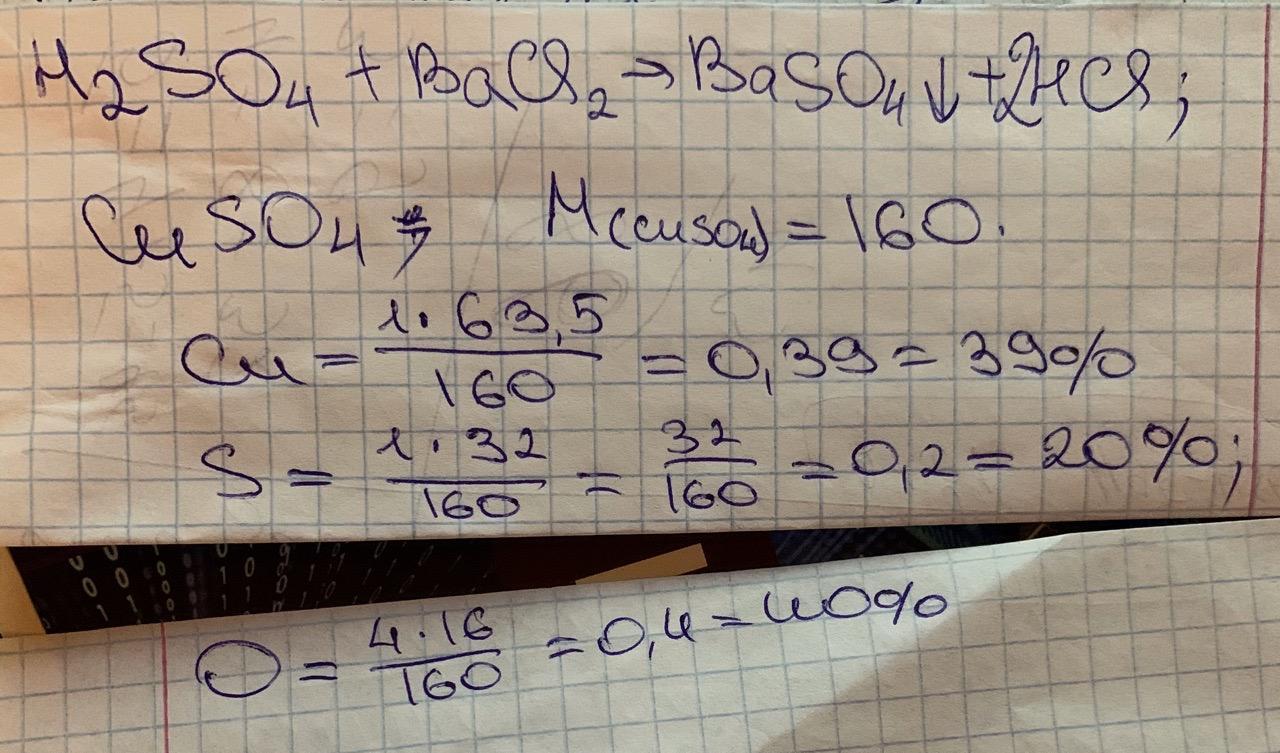 H₂SO₄ + BaCl₂ → BaSO₄↓ + 2HCl;
CuSO₄ M(CuSO₄) = 160.
Cu = 1·63,5/160 = 0,39 = 39%
S = 1·32/160 = 32/160 = 0,2 = 20%;
O = 4·16/160 = 0,4 = 40%